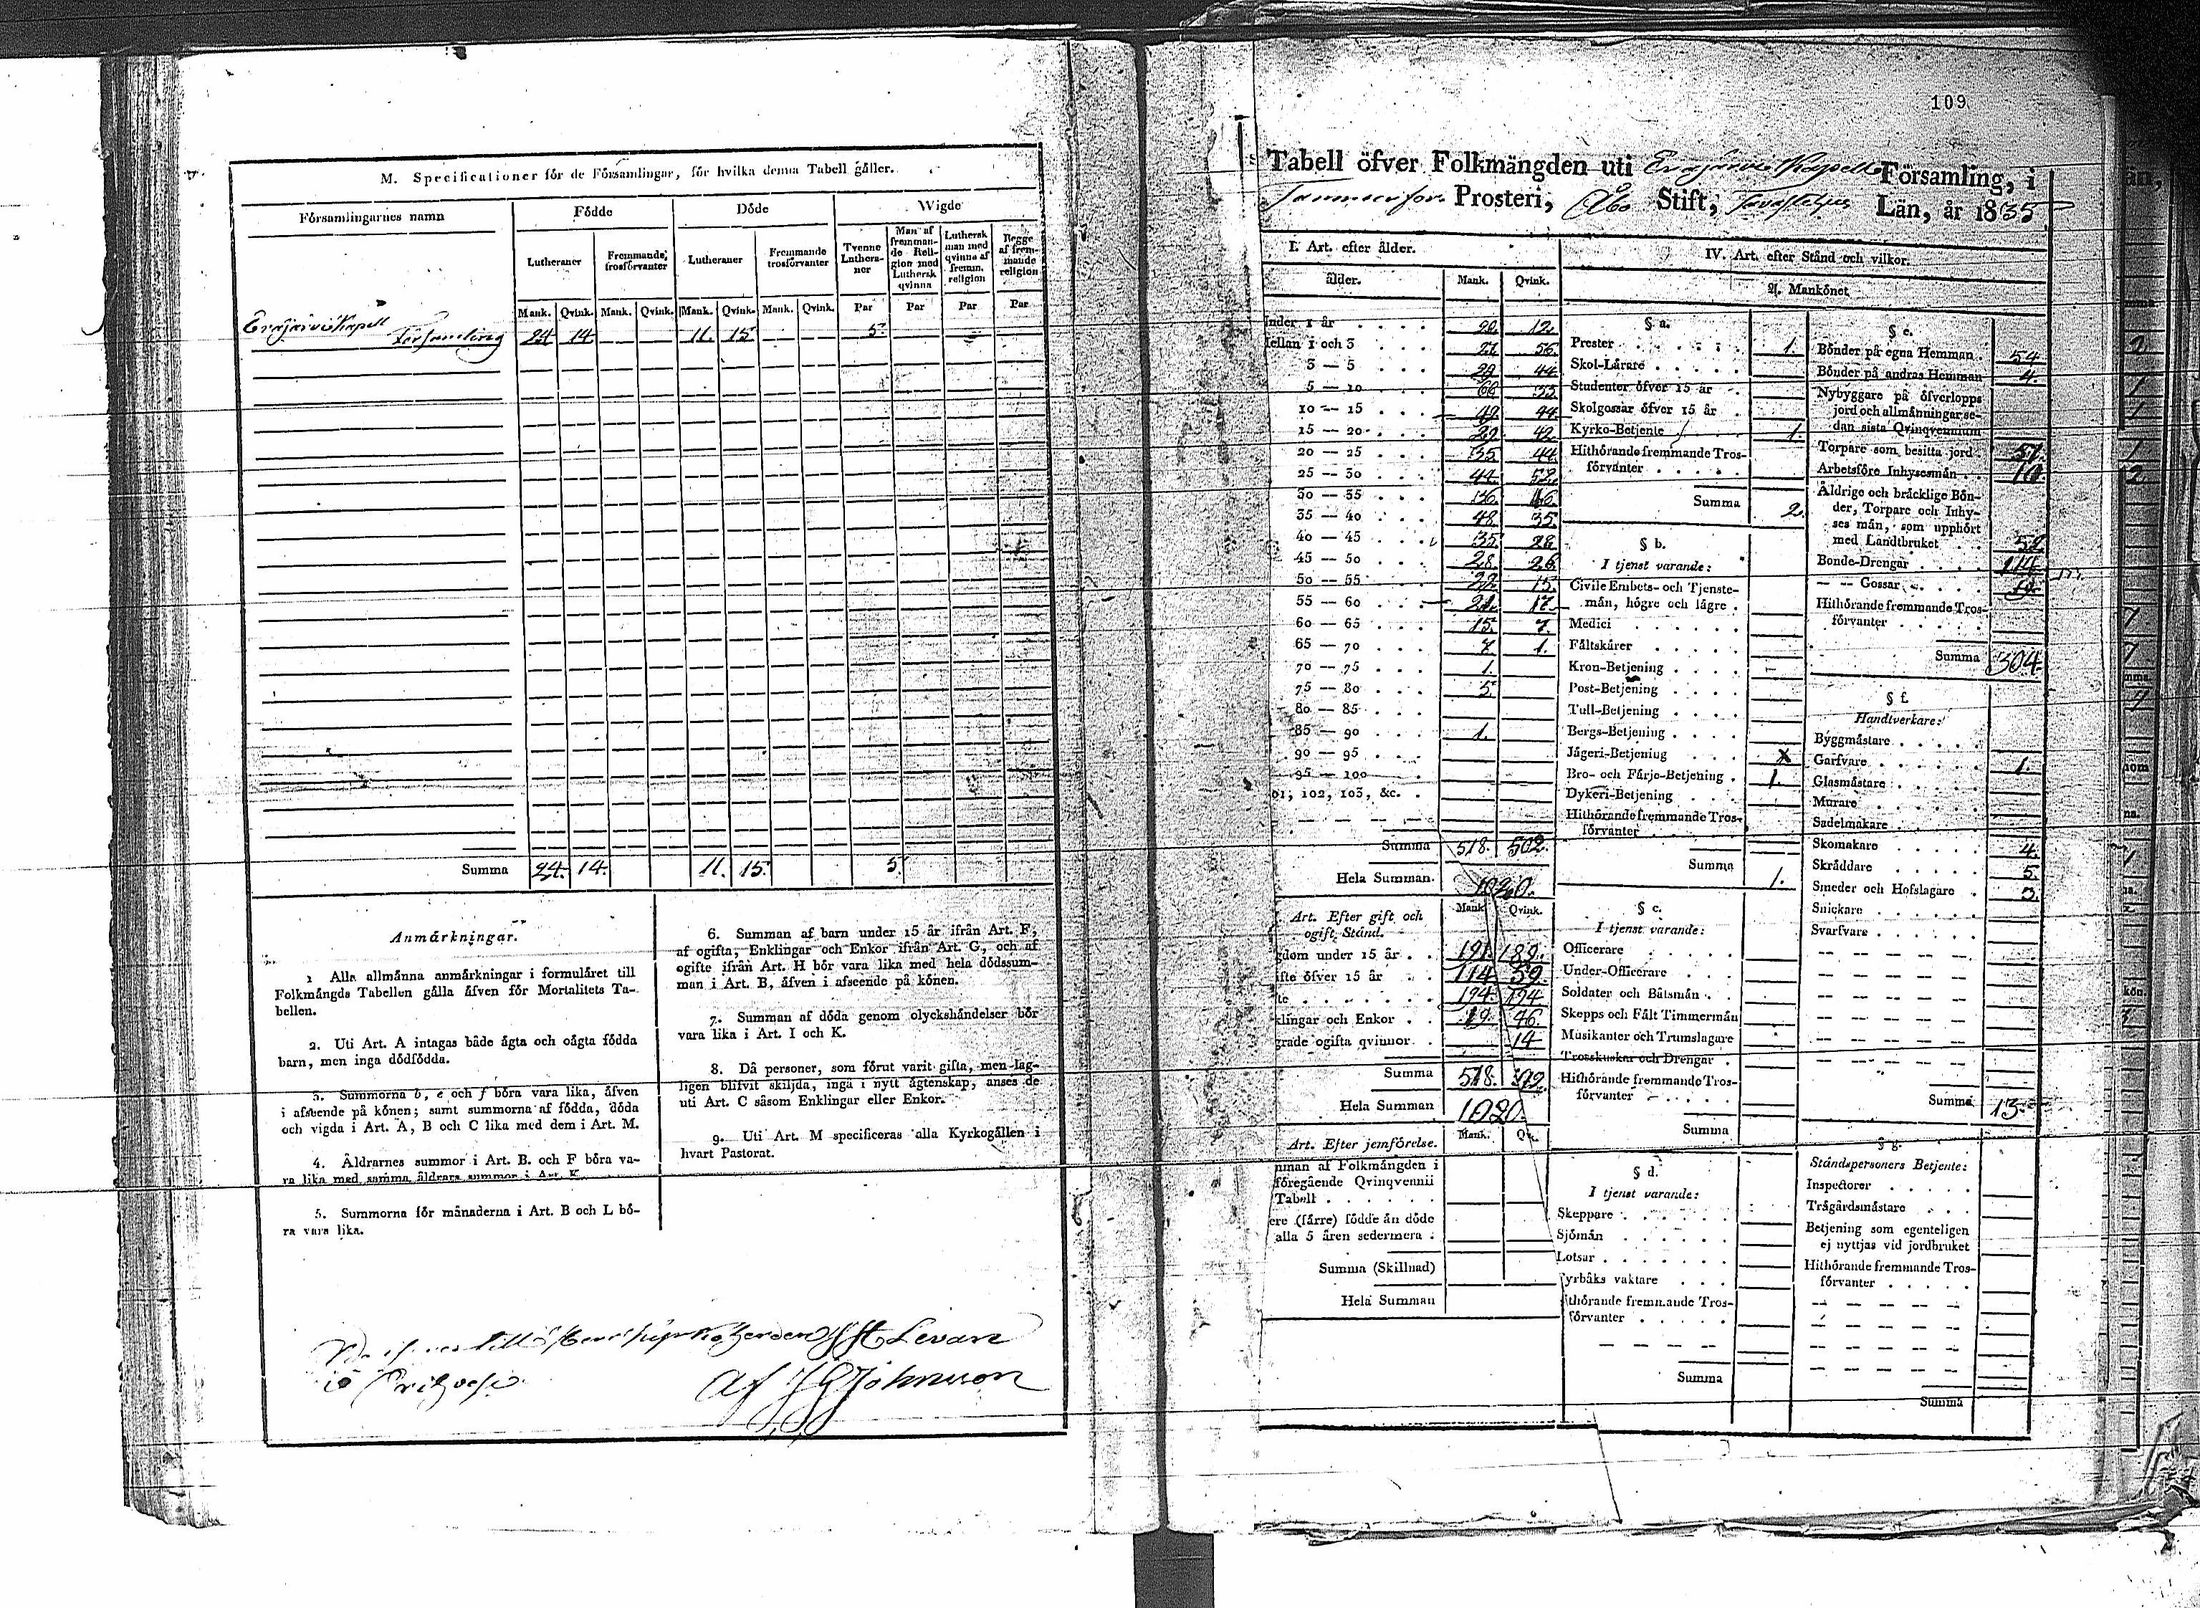 M. Specificationer för de Församlingar, för hvilka denna Tabell gäller.
Församlingarnes namn
Födde
Döde
Wigde
Lutheraner
Fremmande trosförvanter
Lutheraner
Fremmande trosförvanter
Tvenne Lutheraner
Man af fremmande Religion med Luthersk qvinna
Luthersk man med qvinna af fremm. religion
Begge af fremmande religion
Mank. Qvink. Mank. Qvink. Mank. Qvink. Mank. Qvink. Par Par Par Par
Erajärvi Kapell
Församling 24 14 11. 15 5
Summa 24. 14. 11. 15. 5.
Anmärkningar.
1 Alla allmänna anmärkningar i formuläret till
Folkmängds Tabellen gälla äfven för Mortalitets Ta-
bellen.
2. Uti Art. A intagas både ägta och oägta födda
barn, men inga dödfödda.
3. Summorna b, e och f böra vara lika, äfven
i afseende på könen; samt summorna af födda, döda
och vigda i Art. A, B och C lika med dem i Art. M.
4. Åldrarnes summor i Art. B. och F böra va-
ra lika med samma åldrars summor i Art. K.
5. Summorna för månaderna i Art. B och L bö-
ra vara lika.
6. Summan af barn under 15 år ifrån Art. F,
af ogifta, Enklingar och Enkor ifrån Art. G, och af
ogifte ifrån Art. H bör vara lika med hela dödssum-
man i Art. B, äfven i afseende på könen.
7. Summan af döda genom olyckshändelser bör
vara lika i Art. I och K.
8. Då personer, som förut varit gifta, men lag-
ligen blifvit skiljda, ingå i nytt ägtenskap, anses de
uti Art. C såsom Enklingar eller Enkor.
9. Uti Art. M specificeras alla Kyrkogällen i
hvart Pastorat.
Levan
af J G Johnsson
109
Tabell öfver Folkmängden uti Erajärvi Kapells Församling, i
Tammerfors Prosteri, Åbo Stift, Tavastehus Län, år 1835
I. Art. efter ålder.
ålder. Mank. Qvink.
nder 1 år 20. 12.
ellan 1 och 3 27. 56.
3 — 5 29 44
5 — 10
10 — 15 49. 44.
15 — 20 29. 42.
20 — 25 35. 44.
25 — 30 44. 52.
30 — 35
35 — 40 48. 35.
40 — 45 35. 28.
45 — 50 28. 26.
50 — 55 22. 15.
55 — 60 21. 17.
60 — 65 15. 7.
65 — 70 7. 1.
70 — 75 1.
75 — 80 5.
80 — 85
85 — 90 1.
90 — 95
95 — 100
01, 102, 103, &c.
Summa 518. 502.
Hela Summan. 1020.
Art. Efter gift och
ogift Stånd.
Mank. Qvink.
gdom under 15 år 191. 189.
ifte öfver 15 år 114. 59.
te 194. 194
klingar och Enkor 19. 46.
grade ogifta qvinnor. 14
Summa 518. 502.
Hela Summan 1020.
Art. Efter jemförelse.
Mank. Qv.
mman af Folkmängden i
föregående Qvinqvennii
Tabell
ere (färre) födde än döde
alla 5 åren sedermera
Summa (Skillnad)
Hela Summan
IV. Art. efter Stånd och vilkor.
A. Mankönet
§ a.
Prester 1.
Skol-Lärare
Studenter öfver 15 år
Skolgossar öfver 15 år
Kyrko-Betjente 1.
Hithörande fremmande Tros-
förvanter
Summa 2.
§ b.
I tjenst varande:
Civile Embets- och Tjenste-
män, högre och lägre
Medici
Fältskärer
Kron-Betjening
Post-Betjening
Tull-Betjening
Bergs-Betjening
Jägeri-Betjening
Bro- och Färje-Betjening 1.
Dykeri-Betjening
Hithörande fremmande Tros-
förvanter
Summa 1.
§ c.
I tjenst varande:
Officerare
Under-Officerare
Soldater och Båtsmän
Skepps och Fält Timmermän
Musikanter och Trumslagare
Trosskuskar och Drengar
Hithörande fremmande Tros-
förvanter
Summa
§ d.
I tjenst varande:
Skeppare
Sjömän
Lotsar
yrbåks vaktare
thörande fremmande Tros-
förvanter
Summa
§ e.
Bönder på egna Hemman 54
Bönder på andras Hemman 4.
Nybyggare på öfverlopps
jord och allmänningar se-
dan sista Qvinqvennium
Torpare som besitta jord
Arbetsföre Inhysesmän
Åldrige och bräcklige Bön-
der, Torpare och Inhy-
ses män, som upphört
med Landtbruket 52
Bonde-Drengar 114
— — Gossar
Hithörande fremmande Tros-
förvanter
Summa 304.
§ f.
Handtverkare:
Byggmästare
Garfvare 1.
Glasmästare
Murare
Sadelmakare
Skomakare 4.
Skräddare 5.
Smeder och Hofslagare 3.
Snickare
Svarfvare
Summa 13.
§ g.
Ståndspersoners Betjente:
Inspectorer
Trägårdsmästare
Betjening som egenteligen
ej nyttjas vid jordbruket
Hithörande fremmande Tros-
förvanter
Summa